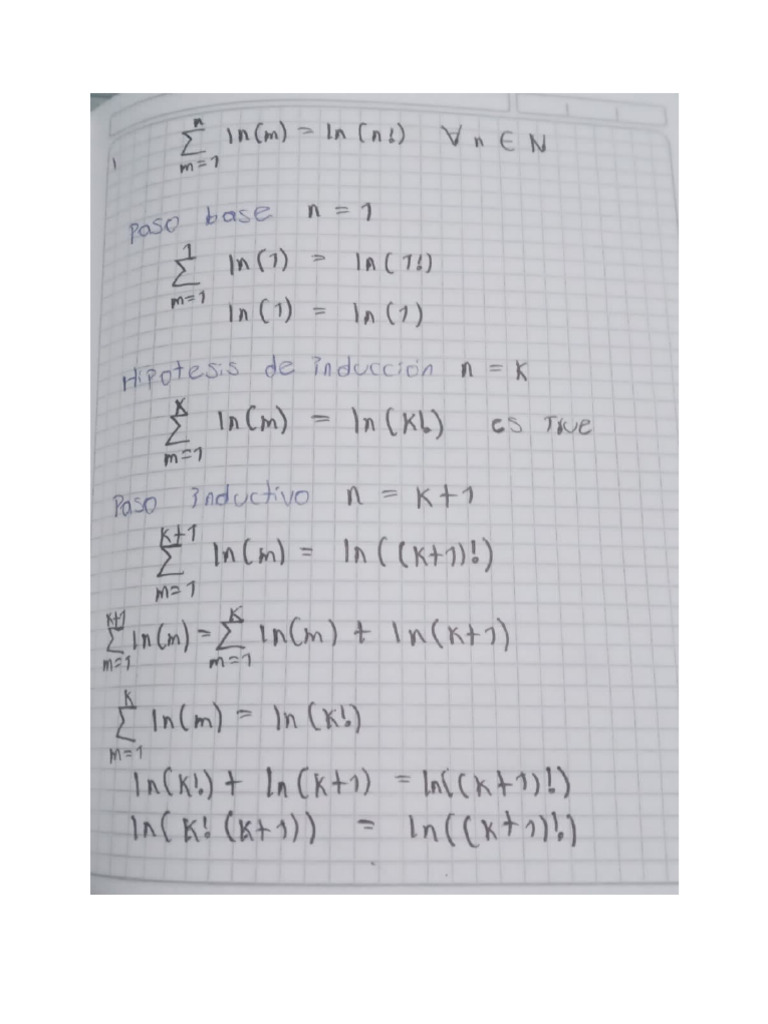 n
∑ ln(m) = ln(n!) ∀ n ∈ N
m=1
Paso base n = 1
1
∑ ln(1) = ln(1!)
m=1
ln(1) = ln(1)
Hipotesis de inducción n = k
k
∑ ln(m) = ln(k!) es True
m=1
Paso inductivo n = k+1
k+1
∑ ln(m) = ln((k+1)!)
m=1
k+1 k
∑ ln(m) = ∑ ln(m) + ln(k+1)
m=1 m=1
k
∑ ln(m) = ln(k!)
m=1
ln(k!) + ln(k+1) = ln((k+1)!)
ln(k! (k+1)) = ln((k+1)!)